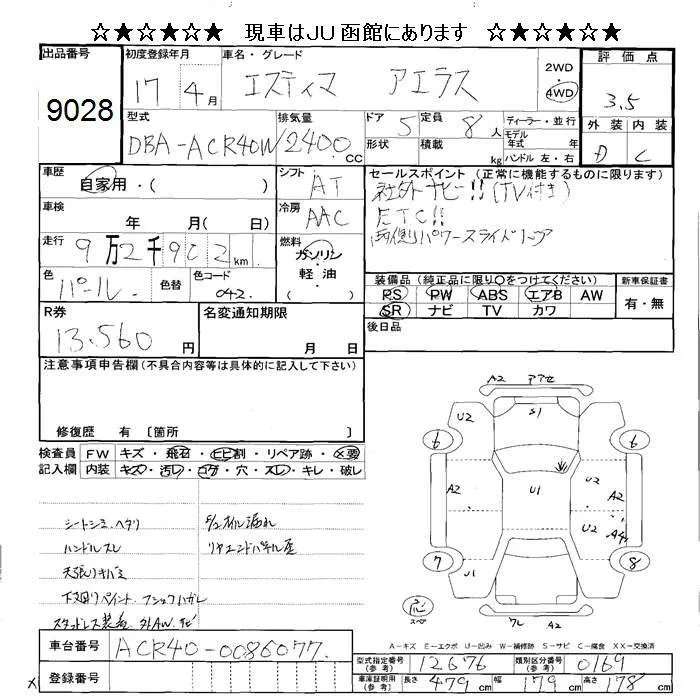 ☆★☆★☆★ 現車はJU函館にあります ☆★☆★☆★
出品番号 初度登録年月 車名・グレード 評価点
9028 17年 4月 エスティマ アエラス 2WD 4WD 3.5
外装 内装
D C
型式 排気量 ドア 定員 ディーラー・並行
DBA-ACR40W 2400cc 5 8人 モデル年式 年
形状 積載 kg ハンドル 左・右
車歴 シフト セールスポイント (正常に機能するものに限ります)
自家用・( ) AT 社外ナビ!!(TV付き)
車検 冷房 ETC!!
年 月( 日) AAC 両側パワースライドドア
走行 燃料
9万2千902km ガソリン・軽油・( )
色 色替 色コード 装備品 (純正品に限り○をつけてください) 新車保証書
パール 042 PS PW ABS エアB AW 有・無
SR ナビ TV カワ
R券 名変通知期限 後日品
13.560円 月 日
注意事項申告欄 (不具合内容等は具体的に記入して下さい)
修復歴 有 〔箇所 〕
検査員記入欄 FW キズ・飛石・ヒビ割・リペア跡・×要
内装 キズ・汚レ・コゲ・穴・スレ・キレ・破レ
シートシミ、ヘタリ
E/Gオイル漏れ
ハンドルスレ
リヤエンドパネル歪
天張りキバミ
下廻りペイント、フックハガレ
スタッドレス装着
A2 アアセ
U2 S1 U2
6 6
A2 U1 A2
U2 A4
7 8
U1
応 スペ
ワレ A2
A-キズ E-エクボ U-凹み W-補修跡 S-サビ C-腐食 XX-交換済
車台番号 ACR40-0086077
型式指定番号(参考) 12676 類別区分番号(参考) 0169
登録番号
車庫証明用(参考) 長さ 479cm 幅 179cm 高さ 178cm